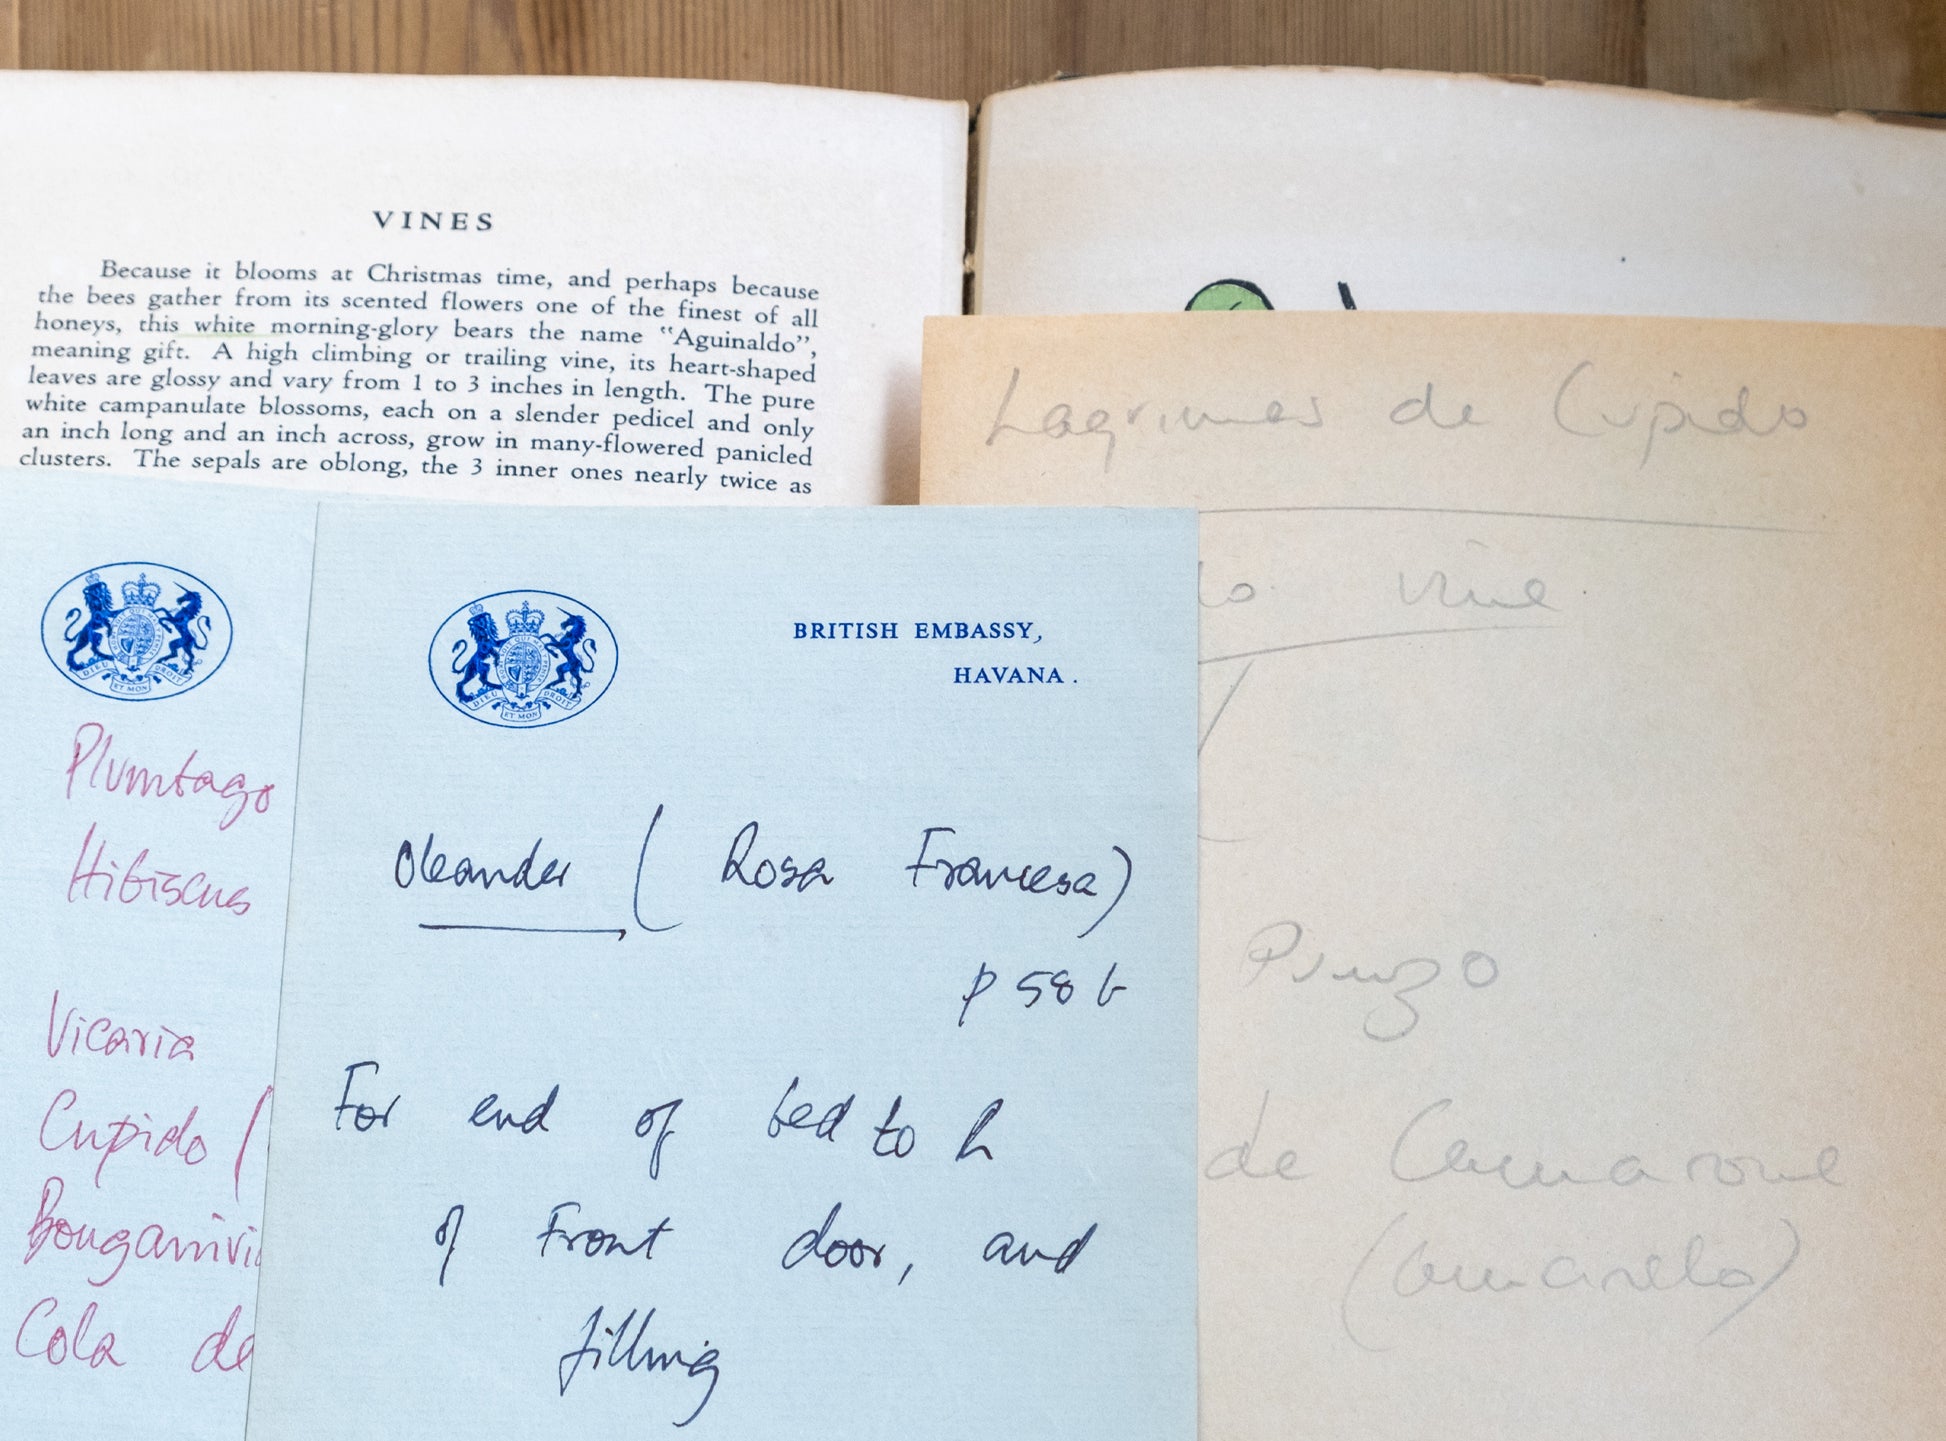 VINES
Because it blooms at Christmas time, and perhaps because
the bees gather from its scented flowers one of the finest of all
honeys, this white morning-glory bears the name "Aguinaldo",
meaning gift. A high climbing or trailing vine, its heart-shaped
leaves are glossy and vary from 1 to 3 inches in length. The pure
white campanulate blossoms, each on a slender pedicel and only
an inch long and an inch across, grow in many-flowered panicled
clusters. The sepals are oblong, the 3 inner ones nearly twice as
Lagrimas de Cupido
vine
de
DIEU ET MON DROIT
Plumtago
Hibiscus
Vicaria
Cupido (
Cola de
DIEU ET MON DROIT
BRITISH EMBASSY,
HAVANA.
Oleander (Rosa Francesa)
p 58 b
For end of bed to R
of Front door, and
filling